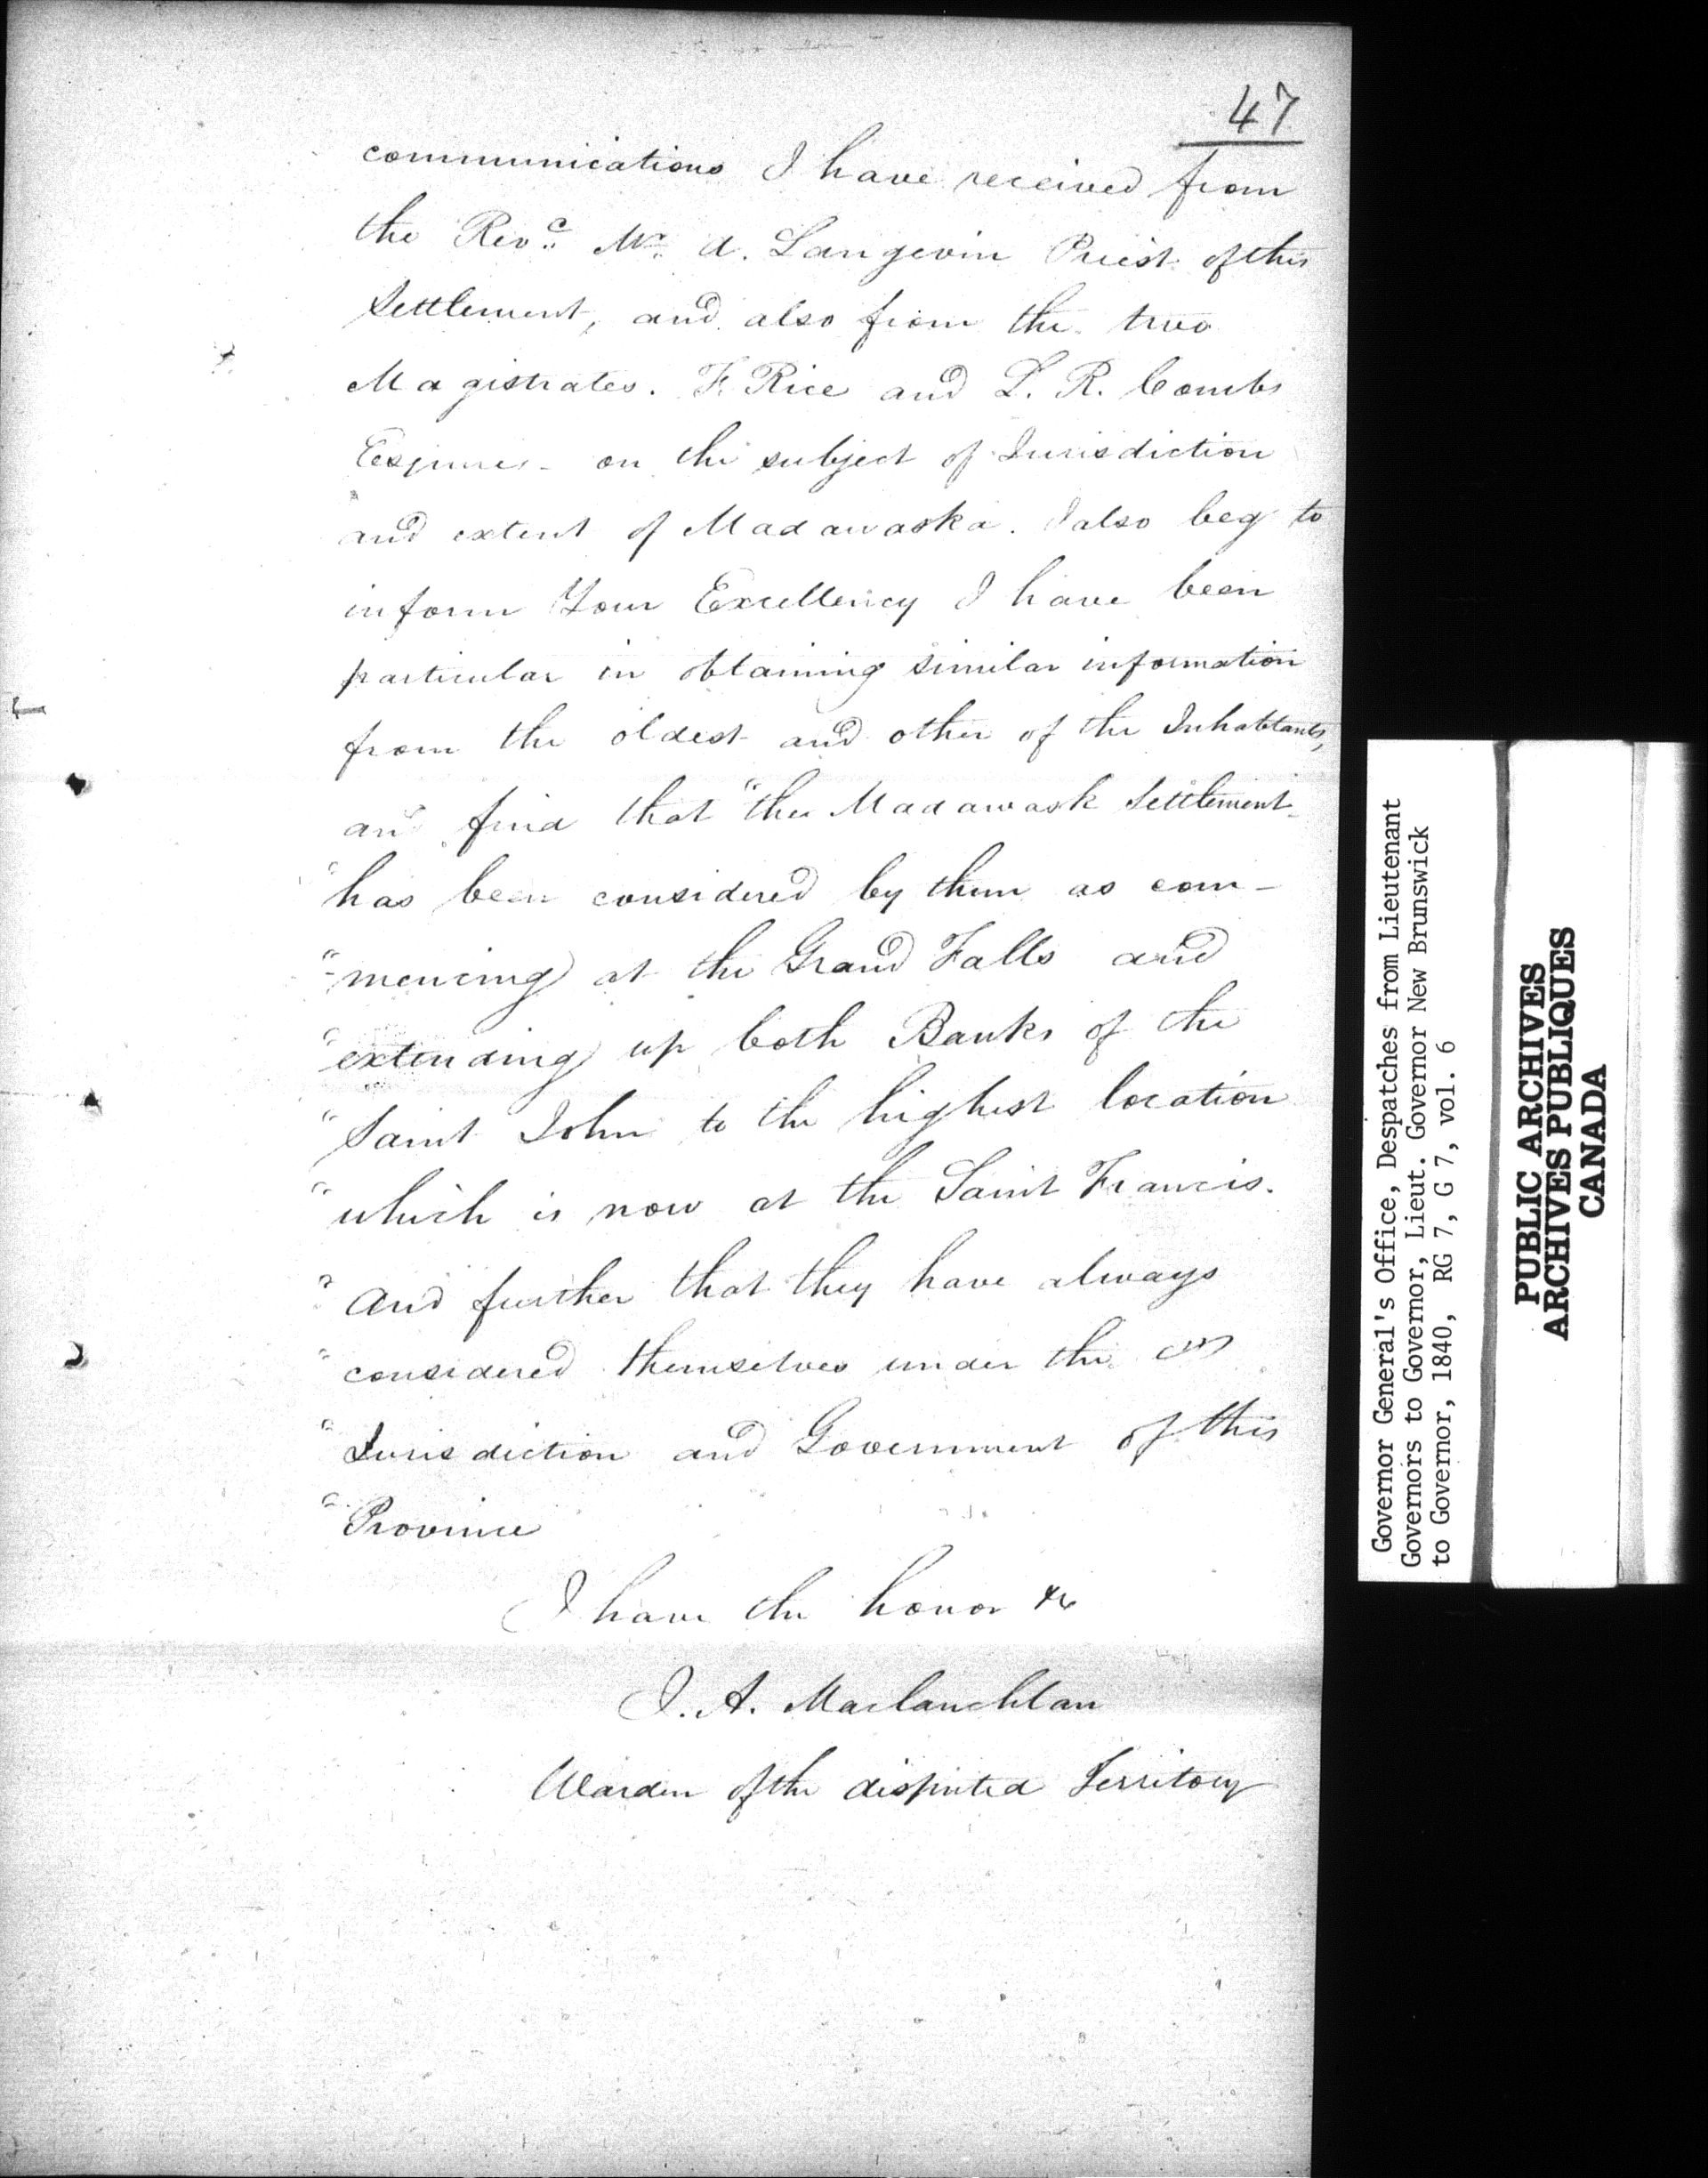 47
communications I have received from
the Revd. Mr. A. Langevin Priest of this
Settlement, and also from the two
Magistrates. F. Rice and L. R. Combs
Esquires - on the subject of Jurisdiction
and extent of Madawaska. I also beg to
inform Your Excellency I have been
particular in obtaining similar information
from the oldest and other of the Inhabtants,
and find that "the Madawask Settlement
"has been considered by them as com-
"-mencing at the Grand Falls and
"extending up both Banks of the
"Saint John to the highest location
"which is now at the Saint Francis.
"And further that they have always
"considered themselves under the
"Jurisdiction and Government of this
"Province
I have the honor &c
J. A. Maclauchlan
Warden of the disputed Territory
Governor General's Office, Despatches from Lieutenant
Governors to Governor, Lieut. Governor New Brunswick
to Governor, 1840, RG 7, G 7, vol. 6
PUBLIC ARCHIVES
ARCHIVES PUBLIQUES
CANADA